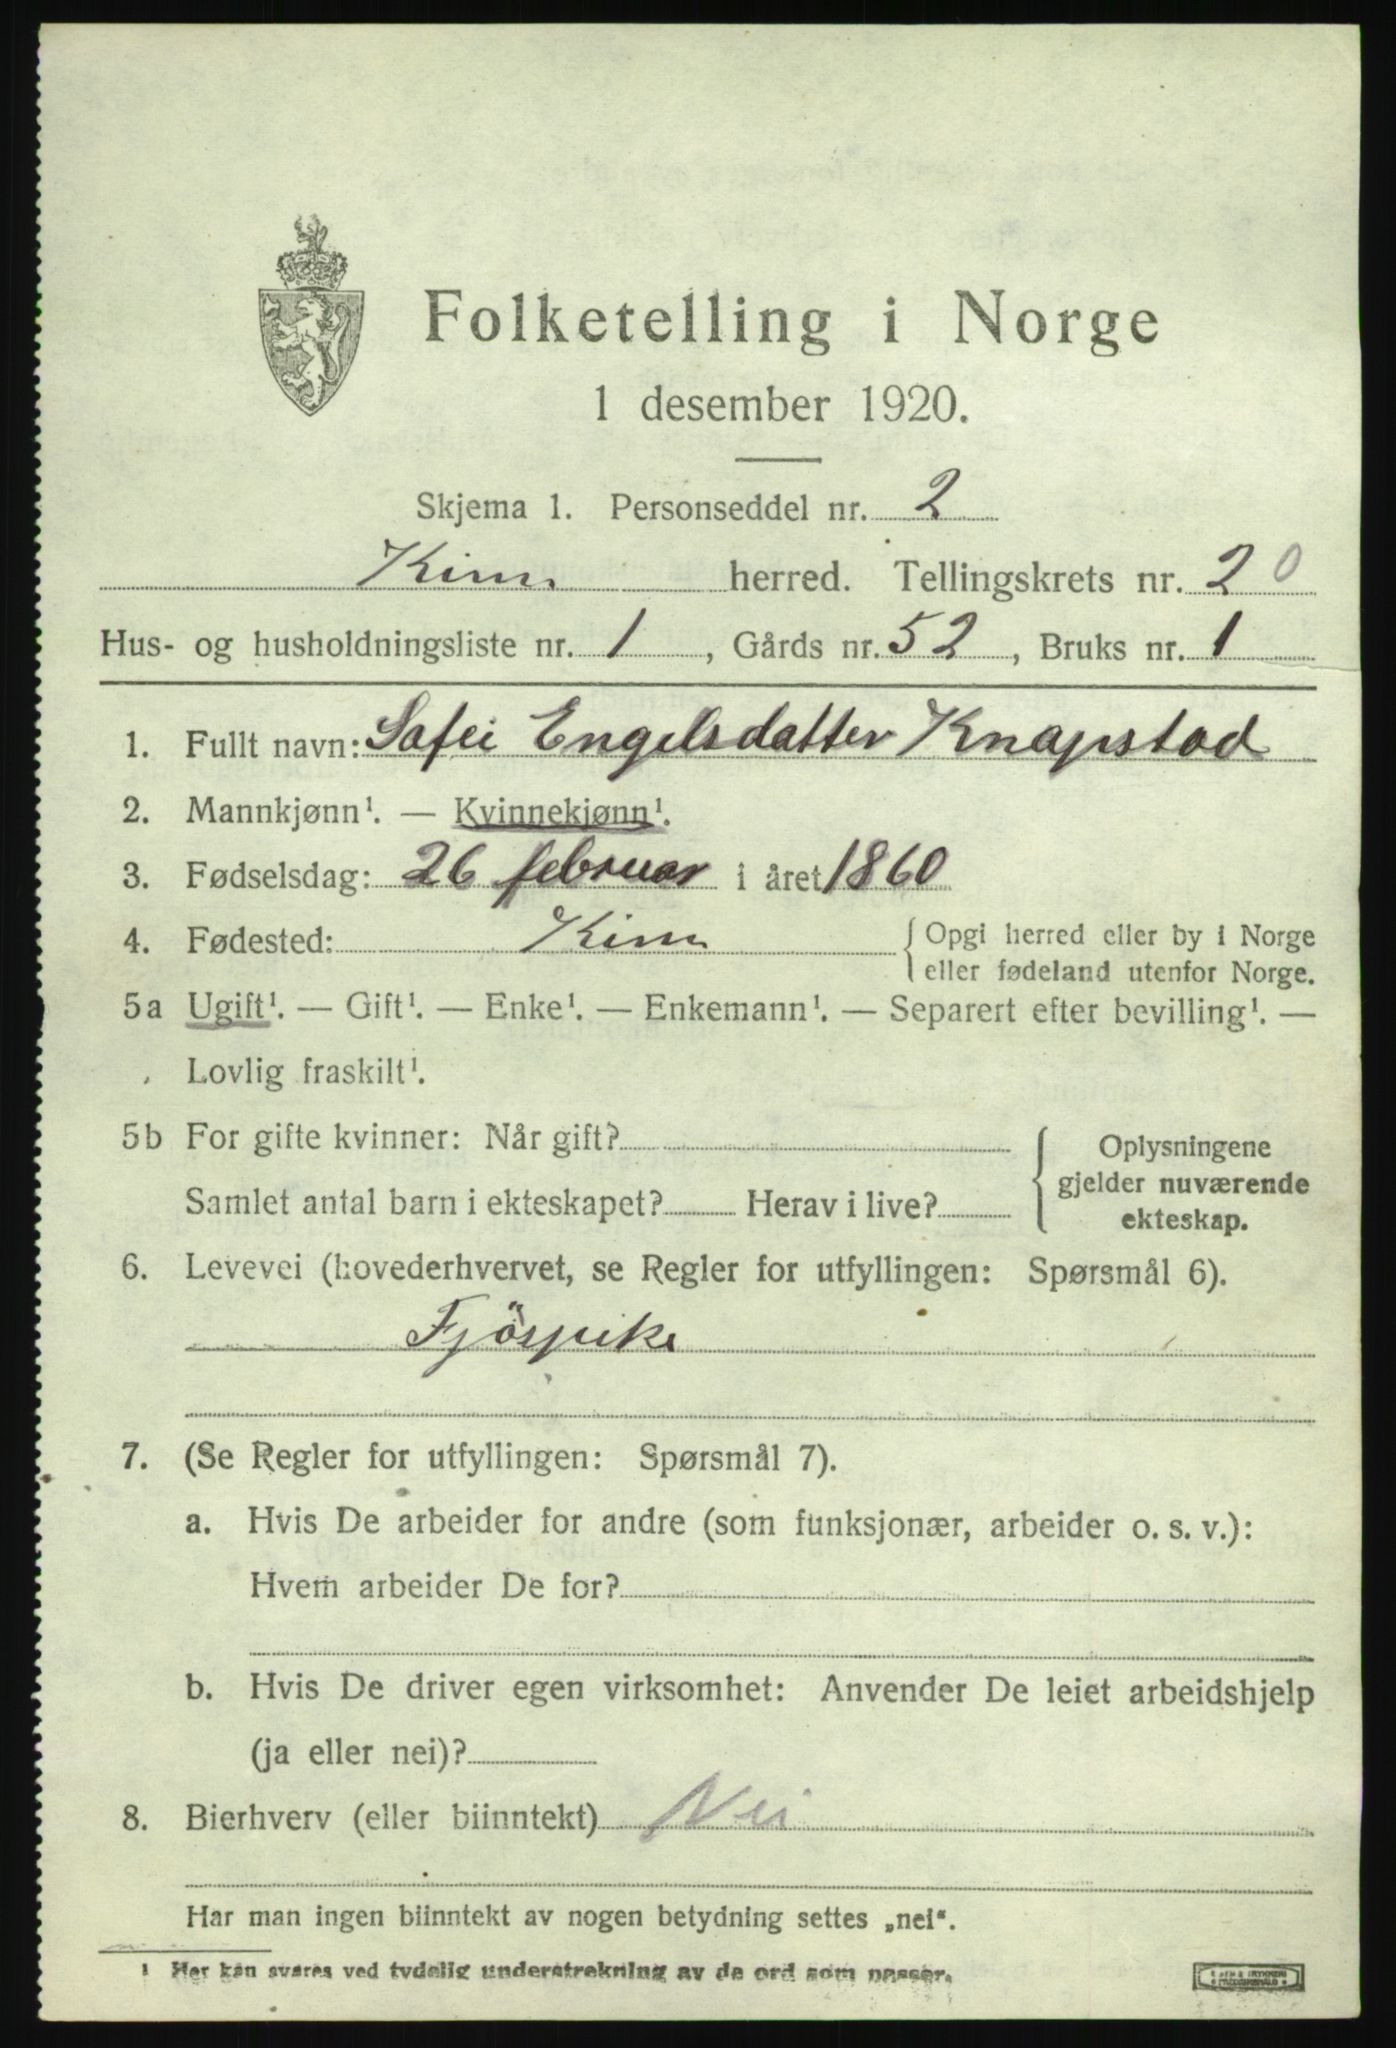 Folketelling i Norge
1 desember 1920.
Skjema 1. Personseddel nr. 2
Kinn herred. Tellingskrets nr. 20
Hus- og husholdningsliste nr. 1, Gårds nr. 52, Bruks nr. 1
1. Fullt navn: Safei Engelsdatter Knapstad
2. Mannkjønn¹. — Kvinnekjønn¹.
3. Fødselsdag: 26 februar i året 1860
4. Fødested: Kinn {Opgi herred eller by i Norge
eller fødeland utenfor Norge.
5a Ugift¹. — Gift¹. — Enke¹. — Enkemann¹. — Separert efter bevilling¹. —
Lovlig fraskilt¹.
5b For gifte kvinner: Når gift? { Oplysningene
gjelder nuværende
Samlet antal barn i ekteskapet? Herav i live?
ekteskap.
6. Levevei (hovederhvervet, se Regler for utfyllingen: Spørsmål 6).
Fjöspike
7. (Se Regler for utfyllingen: Spørsmål 7).
a. Hvis De arbeider for andre (som funksjonær, arbeider o. s. v.):
Hvem arbeider De for?
b. Hvis De driver egen virksomhet: Anvender De leiet arbeidshjelp
(ja eller nei)?
8. Bierhverv (eller biinntekt) Nei
Har man ingen biinntekt av nogen betydning settes „nei“.
¹ Her kan svares ved tydelig understrekning av de ord som passer.